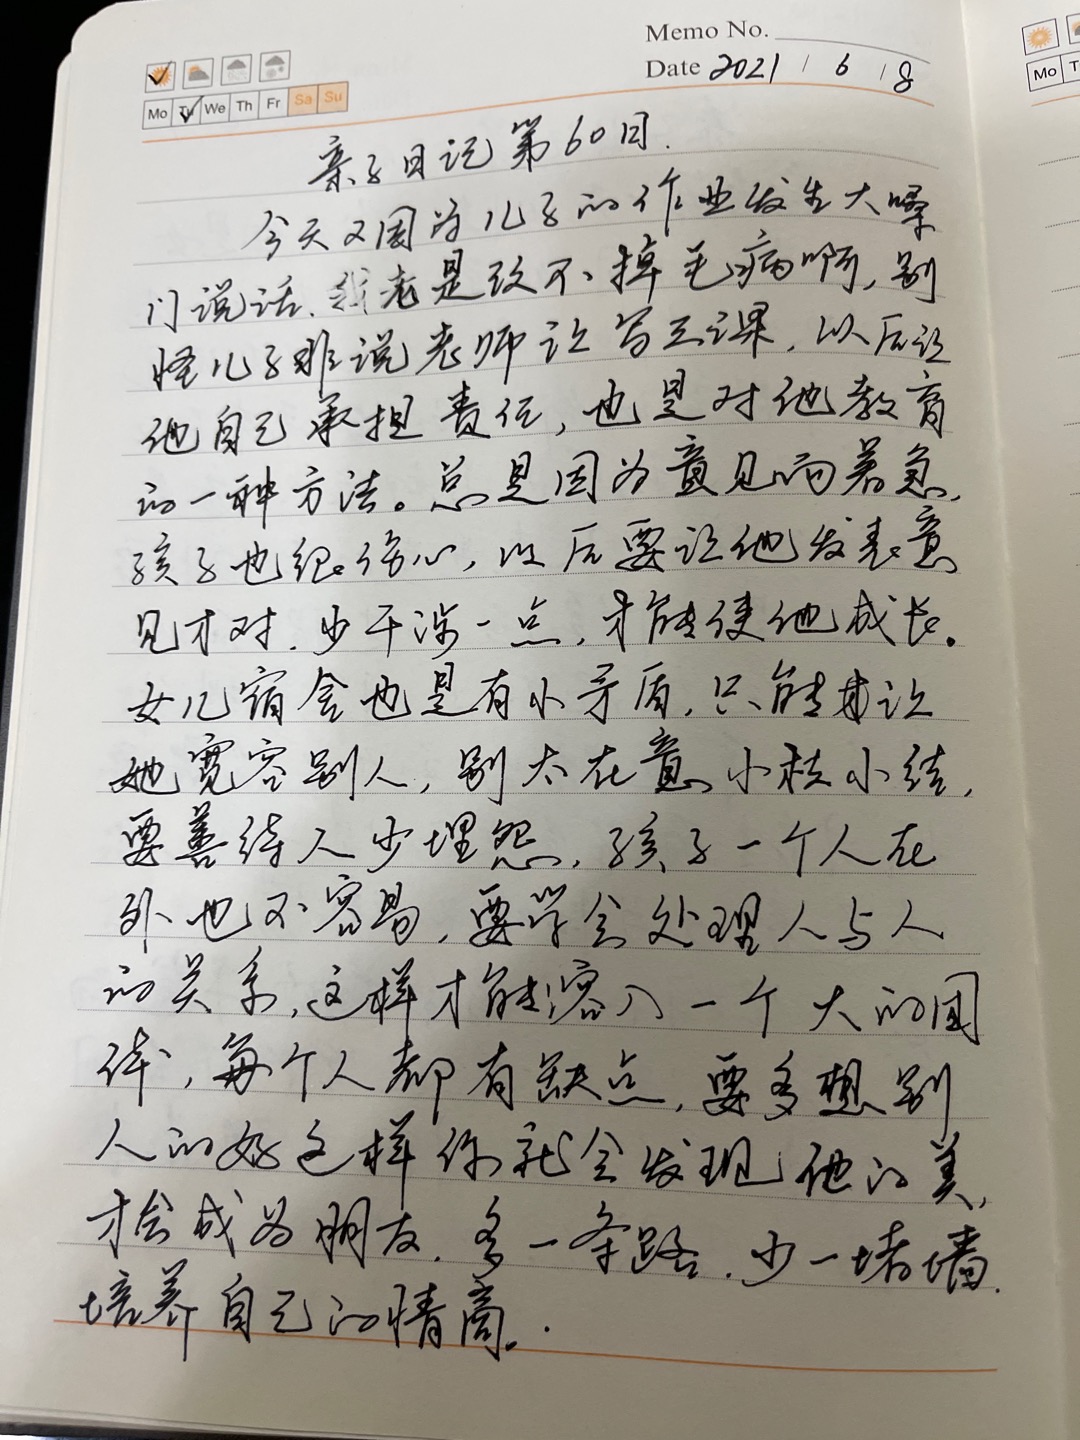 Memo No.
Date 2021 / 6 / 8
Mo Tu We Th Fr Sa Su
Mo
亲子日记第60日.
今天又因为儿子的作业发生大嗓
门说话.我老是改不掉毛病啊,别
怪儿子非说老师让写三课,以后让
他自己承担责任,也是对他教育
的一种方法。总是因为意见而着急,
孩子也很伤心,以后要让他发表意
见才对.少干涉一点,才能使他成长。
女儿宿舍也是有小矛盾,只能让
她宽容别人,别太在意小枝小结,
要善待人少埋怨,孩子一个人在
外也不容易,要学会处理人与人
的关系,这样才能溶入一个大的团
体,每个人都有缺点,要多想别
人的好这样你就会发现他的美,
才会成为朋友.多一条路.少一堵墙.
培养自己的情商。.